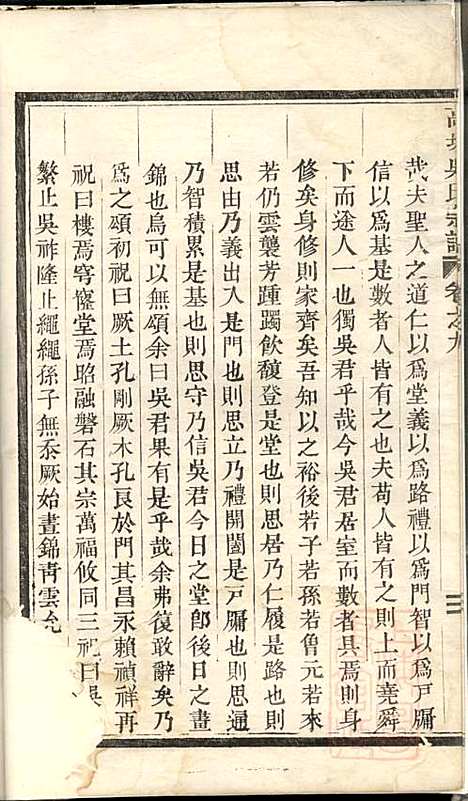 哉夫聖人之道仁以爲堂義以爲路禮以爲門智以爲戸牖
信以爲基是數者人皆有之也夫苟人皆有之則上而堯舜
下而途人一也獨吳君乎哉今吳君居室而數者具焉則身
修矣身修則家齊矣吾知以之裕後若子若孫若曾元若來
若仍雲襲芳踵躅飲馥登是堂也則思居乃仁履是路也則
思由乃義出入是門也則思立乃禮開闔是戸牖也則思通
乃智積累是基也則思守乃信吳君今日之堂郎後日之晝
錦也烏可以無頌余曰吳君果有是乎哉余弗復敢辭矣乃
爲之頌初祝曰厥土孔剛厥木孔良於門其昌永賴禎祥再
祝曰樓焉穹窿堂焉昭融磐石其宗萬福攸同三祝曰吳
繁止吳祚隆止繩繩孫子無忝厥始晝錦靑雲允
吳氏宗譜 卷之九
三